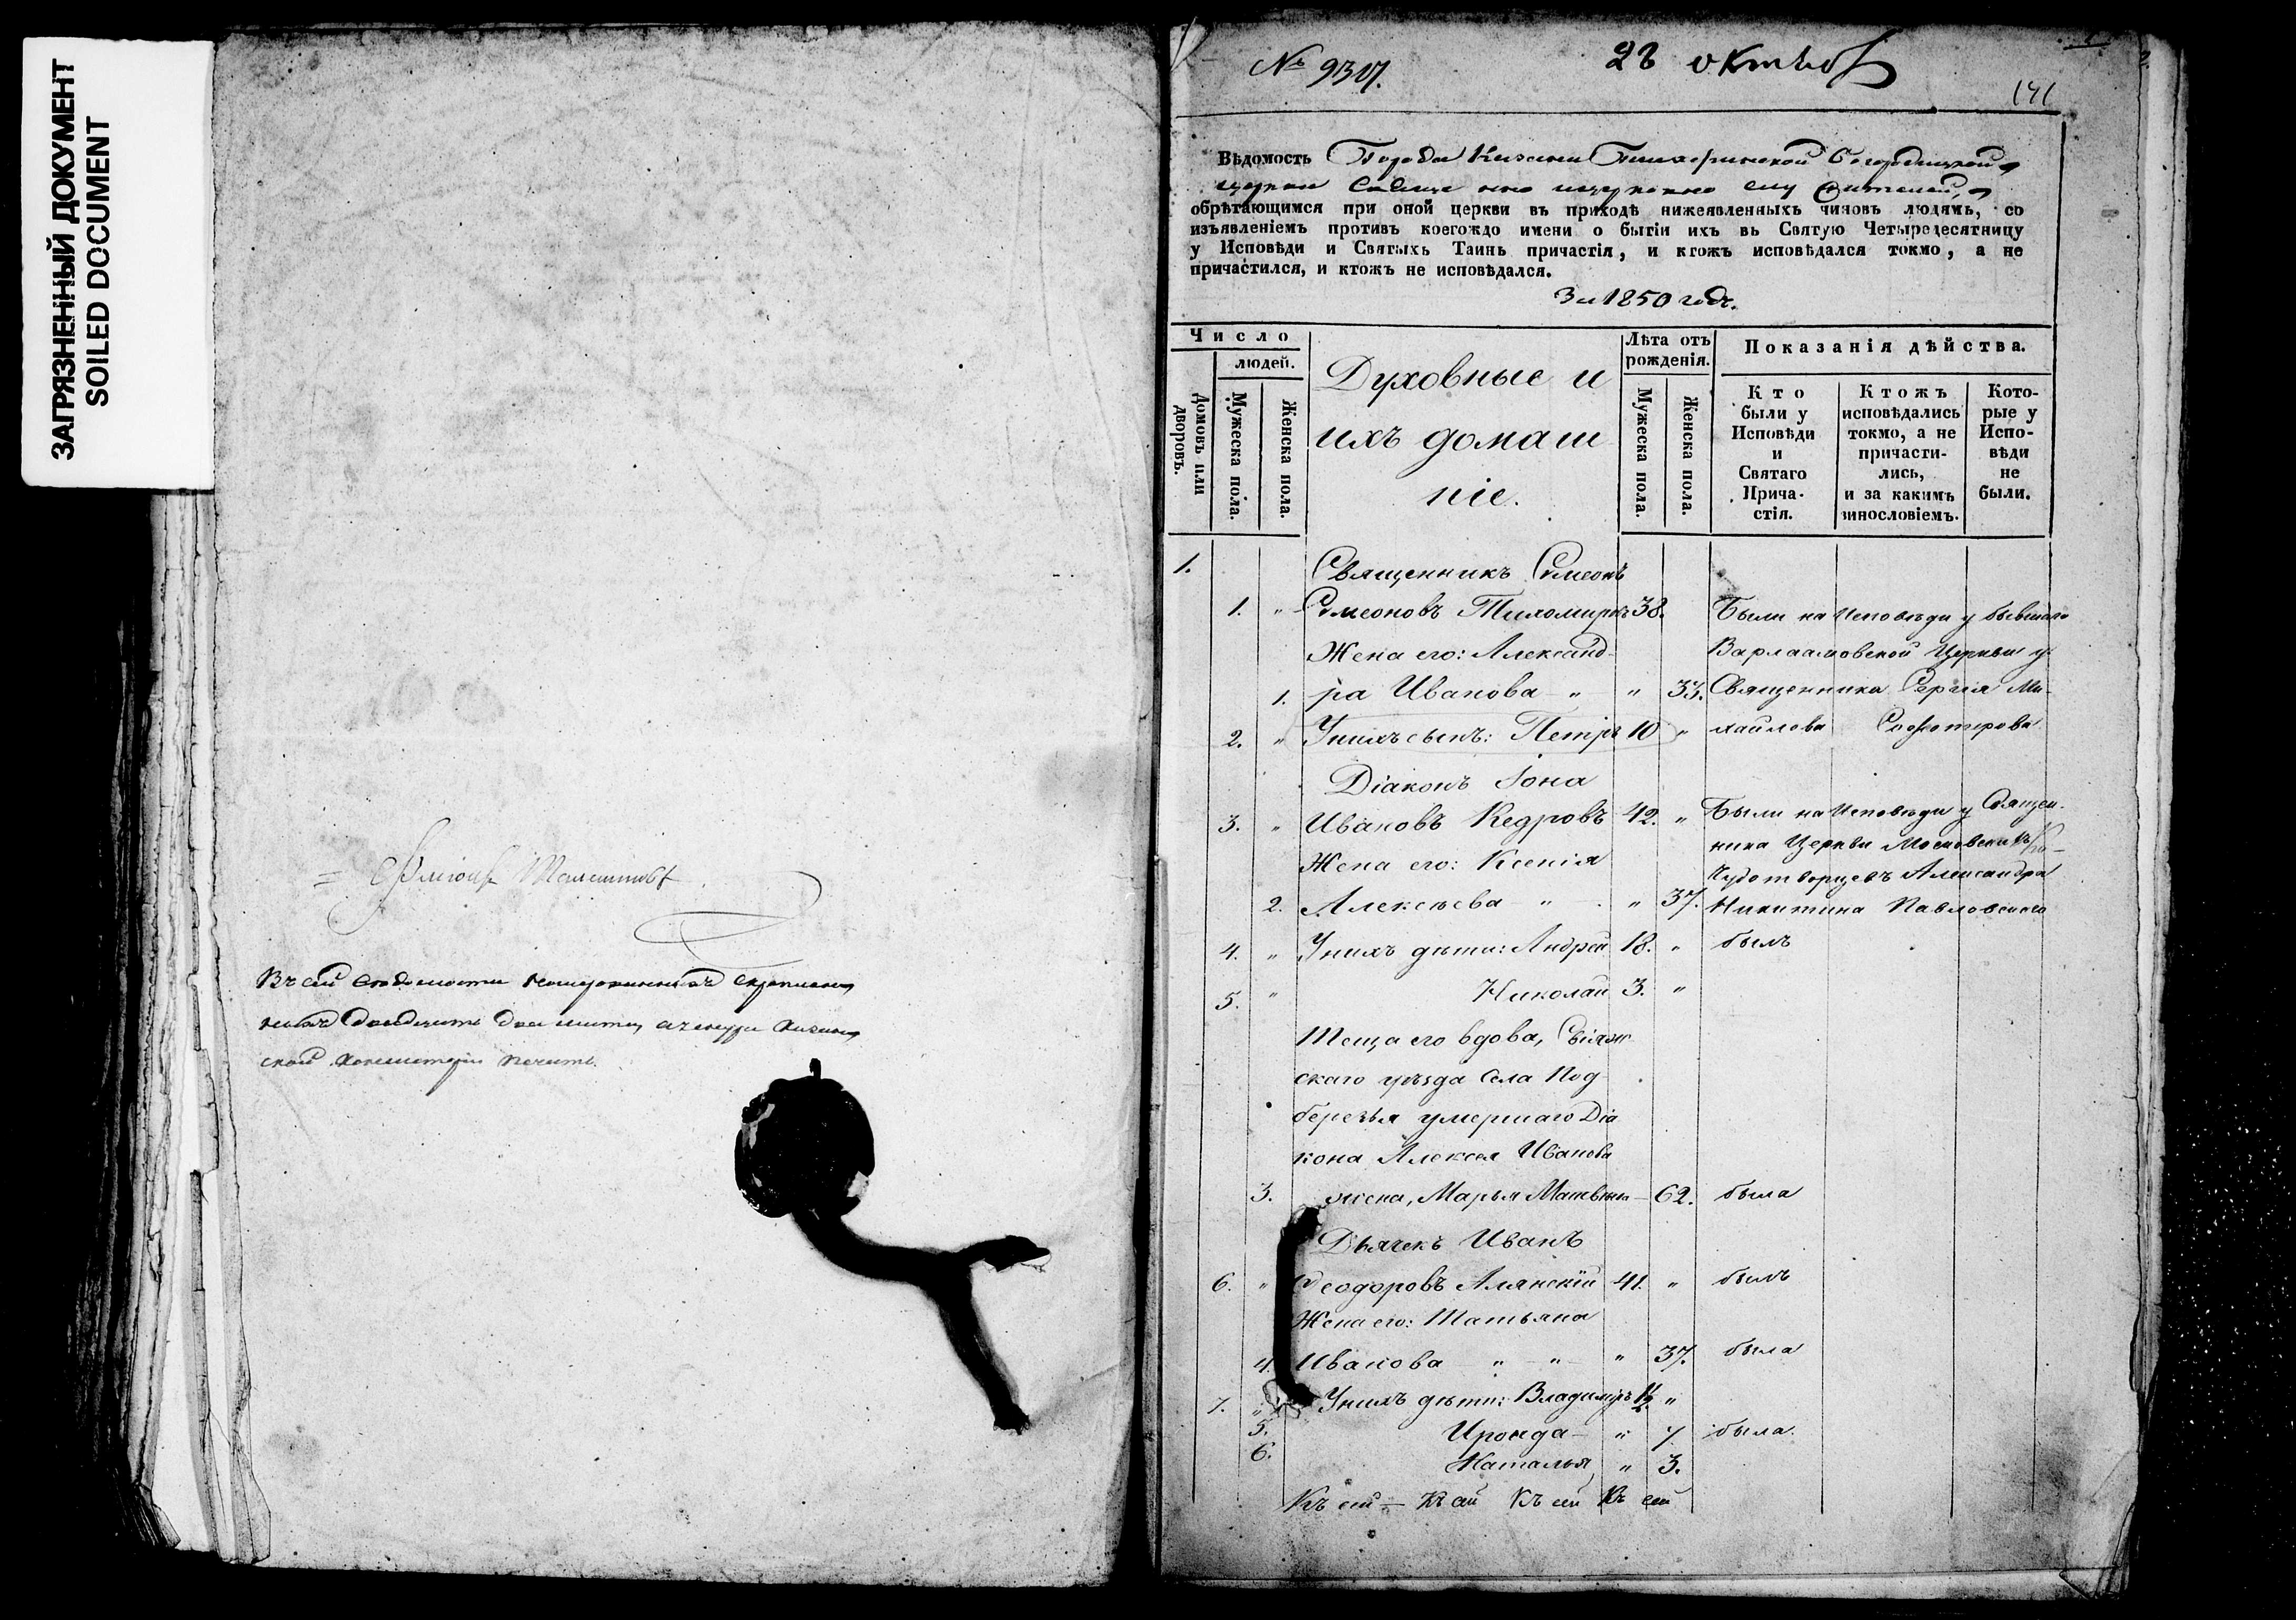 ЗАГРЯЗНЕННЫЙ ДОКУМЕНТ
SOILED DOCUMENT
Въ сей
консисторіи печать.
№ 9317.
28
141
Вѣдомость Города Казани Тихвинской Богородицкой
церкви
обрѣтающимся при оной церкви въ приходѣ нижеявленныхъ чиновъ людямъ, со
изъявленіемъ противъ коегождо имени о бытіи ихъ въ Святую Четыредесятницу
у Исповѣди и Святыхъ Таинъ причастія, и ктожъ исповѣдался токмо, а не
причастился, и ктожъ не исповѣдался.
За 1850 годъ.
Число
людей.
Домовъ или дворовъ.
Мужеска пола.
Женска пола.
Духовные и
ихъ домаш
ніе.
Лѣта отъ
рожденія.
Мужеска пола.
Женска пола.
Показанія дѣйства.
Кто
были у
Исповѣди
и
Святаго
Прича-
стія.
Ктожъ
исповѣдались
токмо, а не
причасти-
лись,
и за какимъ
винословіемъ.
Кото-
рые у
Испо-
вѣди
не
были.
1. Священникъ Симеонъ
1. " Симеоновъ Тихомировъ 38. Были на Исповѣди у бывшаго
Жена его: Александ- Варлаамовской Церкви у
1. ра Иванова " " 33. Священника Сергія Ми-
2. " У нихъ сынъ: Петръ 10 " хайлова
Діаконъ Іона
3. " Ивановъ Кедровъ 42. " Были на Исповѣди у Священ-
Жена его: Ксенія ника Церкви Московскихъ
Чудотворцевъ Александра
2. Алексѣева " " 37. Никитина Павловскаго
4. " У нихъ дѣти: Андрей 18. " былъ
5. " Николай 3. "
Теща его вдова, Свіяж
скаго уѣзда Села Под
березья умершаго Діа
кона Алексея Иванова
3. жена, Марья Матвѣева 62. была
Дьячекъ Иванъ
6. " Ѳеодоровъ Алянскій 41. " былъ
Жена его: Татьяна
4. Иванова " " " 37. была
7. " У нихъ дѣти: Владиміръ 1½ "
5. Ираида " 7. была.
6. Наталья " 3.
Къ сей Къ сей Къ сей Къ сей